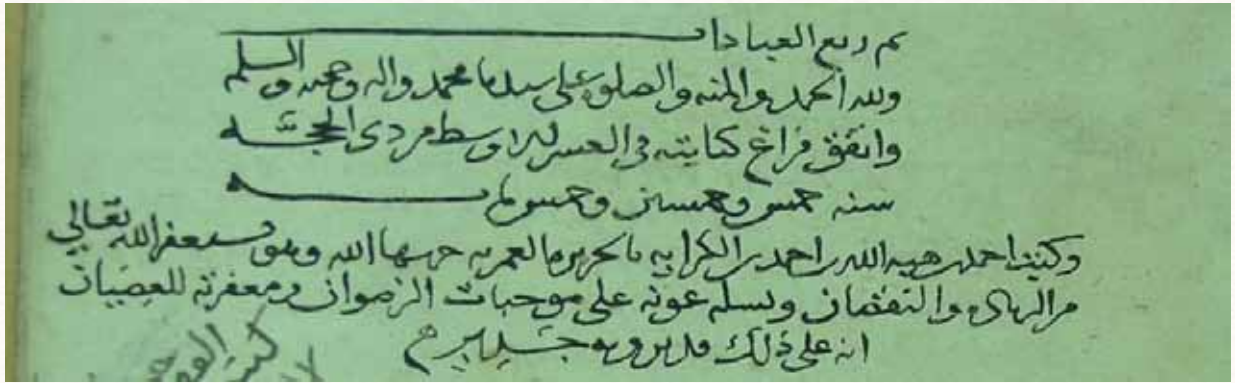 تم ربع العبادات
ولله الحمد والمنه والصلوه على سيدنا محمد واله وصحبه والسلم
واتفق فراغ كتابته في العشر الاوسط من ذي الحجه
سنه خمس وخمسين وخمسمايه
وكتب احمد بن هبه الله بن احمد بن بالجزيره العمريه حرسها الله وهو يستغفر الله تعالى
من الزياده والنقصان ويسله عونه على موجبات الرضوان ومغفرته للعصيان
انه على ذلك قدير وبه جدير
كتب